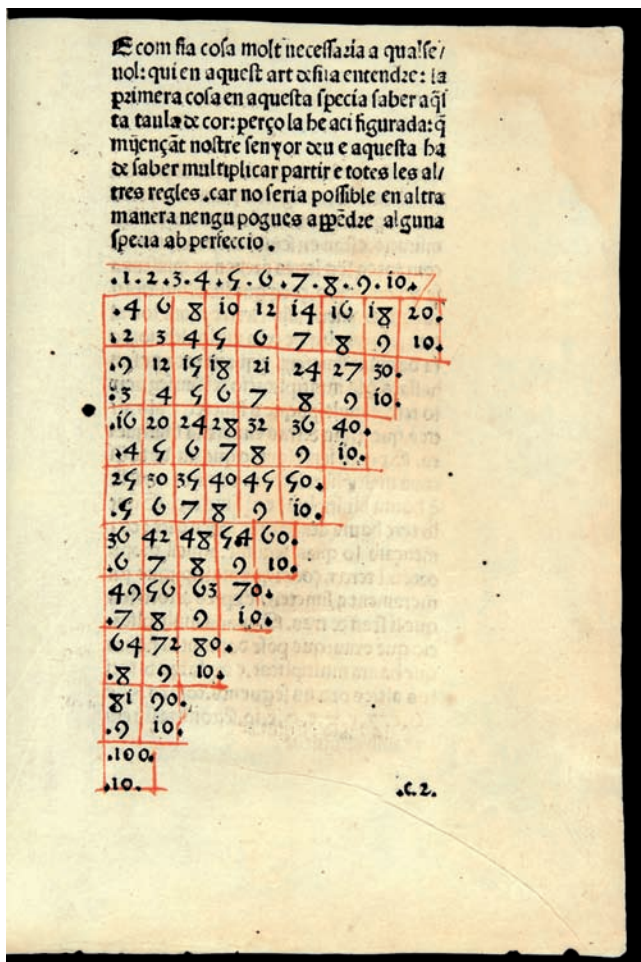 E com sia cosa molt necessaria a qualse/
uol: qui en aquest art desija entendre: la
primera cosa en aquesta specia saber aq̃s
ta taula de cor: perço la he aci figurada: q̃
mijençãt nostre senyor deu e aquesta ha
de saber multiplicar partir e totes les al/
tres regles. car no seria possible en altra
manera nengu pogues apẽdre alguna
specia ab perfeccio.
.1.2.3.4.5.6.7.8.9.10.
.4 6 8 10 12 14 16 18 20.
.2 3 4 5 6 7 8 9 10.
.9 12 15 18 21 24 27 30.
.3 4 5 6 7 8 9 10.
.16 20 24 28 32 36 40.
.4 5 6 7 8 9 10.
25 30 35 40 45 50.
.5 6 7 8 9 10.
36 42 48 54 60.
.6 7 8 9 10.
49 56 63 70.
.7 8 9 10.
64 72 80.
.8 9 10.
81 90.
.9 10.
.100.
.10.
.c.2.